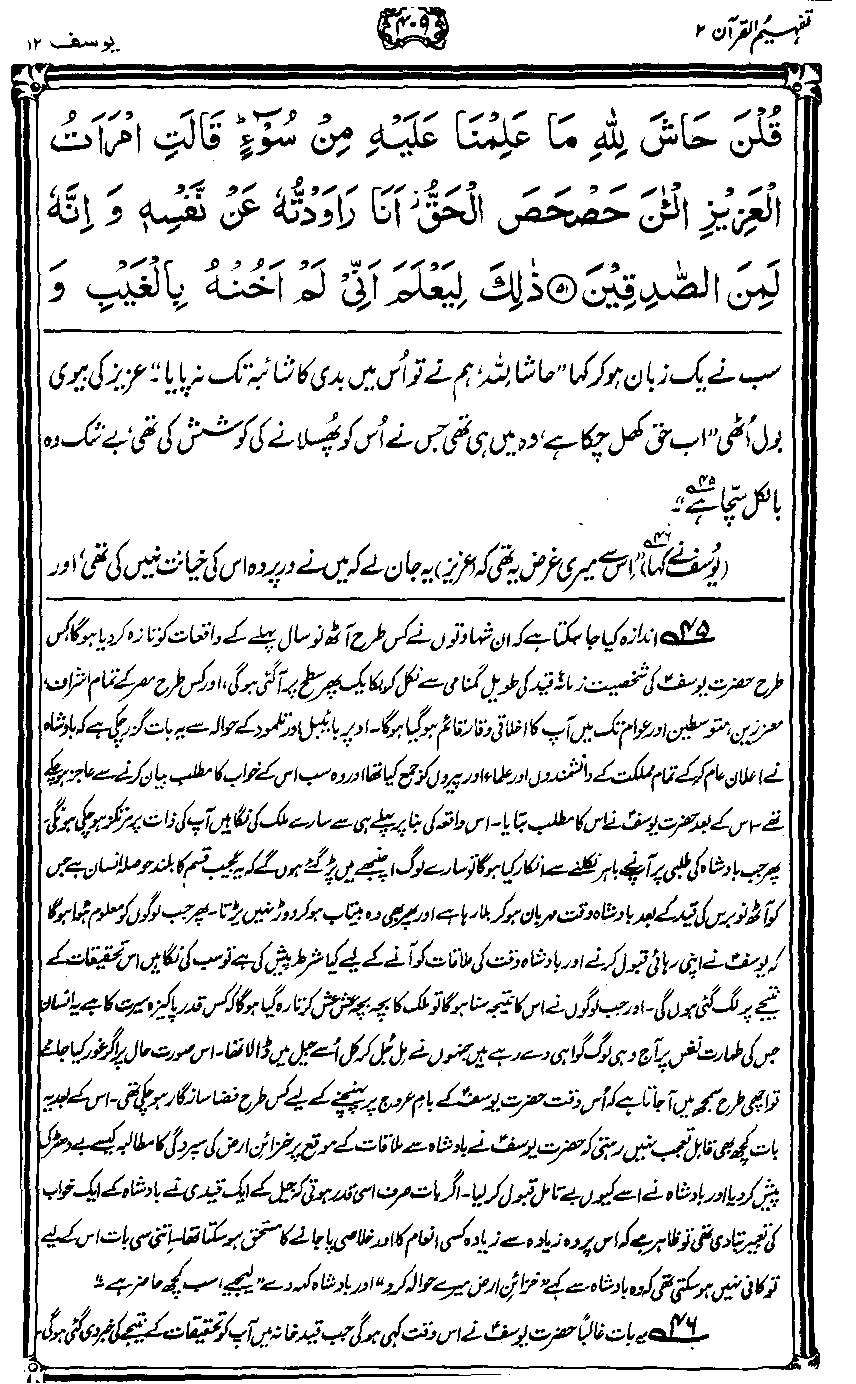 تفہیم القرآن ۲
۴۰۹
یوسف ۱۲
قُلْنَ حَاشَ لِلّٰهِ مَا عَلِمْنَا عَلَيْهِ مِنْ سُوْٓءٍ ؕ قَالَتِ امْرَاَتُ
الْعَزِيْزِ الْـٰٔنَ حَصْحَصَ الْحَقُّ ؗ اَنَا رَاوَدْتُّهٗ عَنْ نَّفْسِهٖ وَ اِنَّهٗ
لَمِنَ الصّٰدِقِيْنَ ﴿۵۱﴾ ذٰلِكَ لِيَعْلَمَ اَنِّيْ لَمْ اَخُنْهُ بِالْغَيْبِ وَ
سب نے یک زبان ہو کر کہا ”حاشا للہ، ہم نے تو اُس میں بدی کا شائبہ تک نہ پایا“۔ عزیز کی بیوی
بول اُٹھی ”اب حق کھل چکا ہے، وہ میں ہی تھی جس نے اُس کو پھُسلانے کی کوشش کی تھی، بے شک وہ
بالکل سچّا ہے۴۵“۔
(یُوسفؑ نے کہا)۴۶ ”اِس سے میری غرض یہ تھی کہ (عزیز) یہ جان لے کہ میں نے درپردہ اس کی خیانت نہیں کی تھی، اور
۴۵ اندازہ کیا جا سکتا ہے کہ ان شہادتوں نے کس طرح آٹھ نو سال پہلے کے واقعات کو تازہ کر دیا ہوگا، کس
طرح حضرت یوسفؑ کی شخصیت زمانۂ قید کی طویل گمنامی سے نکل کر یکا یک پھر سطح پر آگئی ہوگی، اور کس طرح مصر کے تمام اشراف،
معززین، متوسطین اور عوام تک میں آپ کا اخلاقی وقار قائم ہوگیا ہوگا۔ اوپر بائیبل اور تلمود کے حوالہ سے یہ بات گزر چکی ہے کہ بادشاہ
نے اعلان عام کر کے تمام مملکت کے دانشمندوں اور علماء اور پیروں کو جمع کیا تھا اور وہ سب اس کے خواب کا مطلب بیان کرنے سے عاجز ہو چکے
تھے۔ اس کے بعد حضرت یوسفؑ نے اس کا مطلب بتایا۔ اس واقعہ کی بنا پر پہلے ہی سے سارے ملک کی نگاہیں آپ کی ذات پر مرتکز ہو چکی ہونگی۔
پھر جب بادشاہ کی طلبی پر آپ نے باہر نکلنے سے انکار کیا ہوگا تو سارے لوگ اچنبھے میں پڑ گئے ہوں گے کہ یہ عجیب قسم کا بلند حوصلہ انسان ہے جس
کو آٹھ نو برس کی قید کے بعد بادشاہ وقت مہربان ہو کر بلا رہا ہے اور پھر بھی وہ بیتاب ہو کر دوڑ نہیں پڑتا۔ پھر جب لوگوں کو معلوم ہوا ہوگا
کہ یوسفؑ نے اپنی رہائی قبول کرنے اور بادشاہ وقت کی ملاقات کو آنے کے لیے کیا شرط پیش کی ہے تو سب کی نگاہیں اس تحقیقات کے
نتیجے پر لگ گئی ہوں گی۔ اور جب لوگوں نے اس کا نتیجہ سنا ہوگا تو ملک کا بچہ بچہ عش عش کرتا رہ گیا ہوگا کہ کس قدر پاکیزہ سیرت کا ہے یہ انسان
جس کی طہارت نفس پر آج وہی لوگ گواہی دے رہے ہیں جنہوں نے مل جُل کر کل اُسے جیل میں ڈالا تھا۔ اس صورت حال پر اگر غور کیا جائے
تو اچھی طرح سمجھ میں آجاتا ہے کہ اُس وقت حضرت یوسفؑ کے بامِ عروج پر پہنچنے کے لیے کس طرح فضا سازگار ہو چکی تھی۔ اس کے بعد یہ
بات کچھ بھی قابل تعجب نہیں رہتی کہ حضرت یوسفؑ نے بادشاہ سے ملاقات کے موقع پر خزائن ارض کی سپردگی کا مطالبہ کیسے بے دھڑک
پیش کر دیا اور بادشاہ نے اسے کیوں بے تامل قبول کر لیا۔ اگر بات صرف اسی قدر ہوتی کہ جیل کے ایک قیدی نے بادشاہ کے ایک خواب
کی تعبیر بتا دی تھی تو ظاہر ہے کہ اس پر وہ زیادہ سے زیادہ کسی انعام کا اور خلاصی پا جانے کا مستحق ہو سکتا تھا۔ اِتنی سی بات اس کے لیے
تو کافی نہیں ہو سکتی تھی کہ وہ بادشاہ سے کہے ”خزائنِ ارض میرے حوالہ کرو“ اور بادشاہ کہہ دے ”لیجیے، سب کچھ حاضر ہے“۔
۴۶ یہ بات غالباً حضرت یوسفؑ نے اس وقت کہی ہوگی جب قید خانہ میں آپ کو تحقیقات کے نتیجے کی خبر دی گئی ہوگی۔